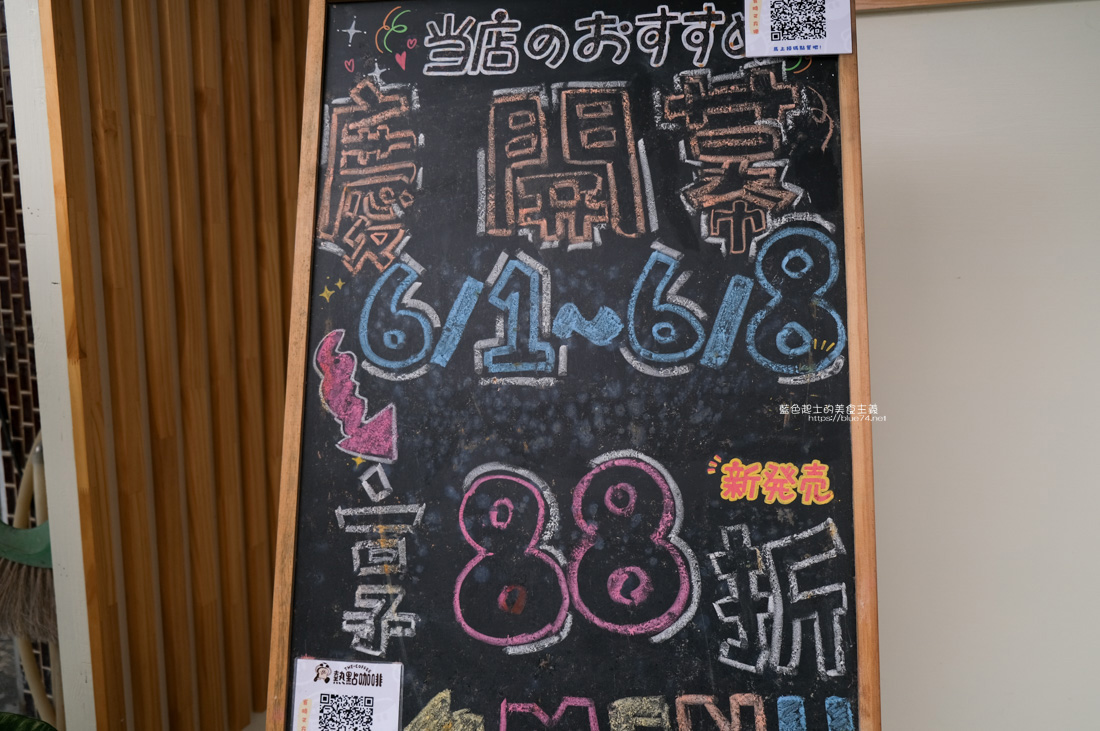 当店のおすすめ
馬上掃碼點餐吧!
慶開幕
6/1~6/8
藍色起士的美食主義
https://blue74.net
新発売
享88折
THE-COFFEE
熱點咖啡
MENU